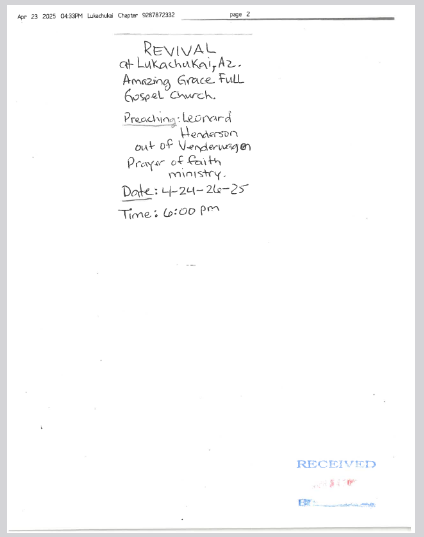 Apr 23 2025 04:33PM Lukachukai Chapter 9287872332 page 2
REVIVAL
at Lukachukai, Az.
Amazing Grace Full
Gospel Church.
Preaching: Leonard
Henderson
out of Vanderwagen
Prayer of faith
ministry.
Date: 4-24-26-25
Time: 6:00 pm
RECEIVED
BY: